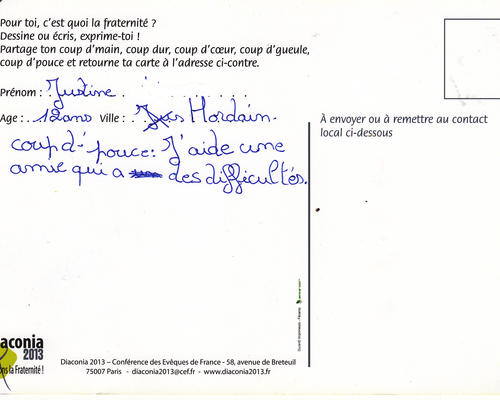 Pour toi, c'est quoi la fraternité ?
Dessine ou écris, exprime-toi !
Partage ton coup d'main, coup dur, coup d'cœur, coup d'gueule,
coup d'pouce et retourne ta carte à l'adresse ci-contre.
Prénom : Justine
Age : 12 ans Ville : Hordain.
coup d' pouce : J'aide une
amie qui a des difficultés.
À envoyer ou à remettre au contact
local ci-dessous
aconia
2013
ns la Fraternité !
Diaconia 2013 – Conférence des Evêques de France - 58, avenue de Breteuil
75007 Paris - diaconia2013@cef.fr - www.diaconia2013.fr